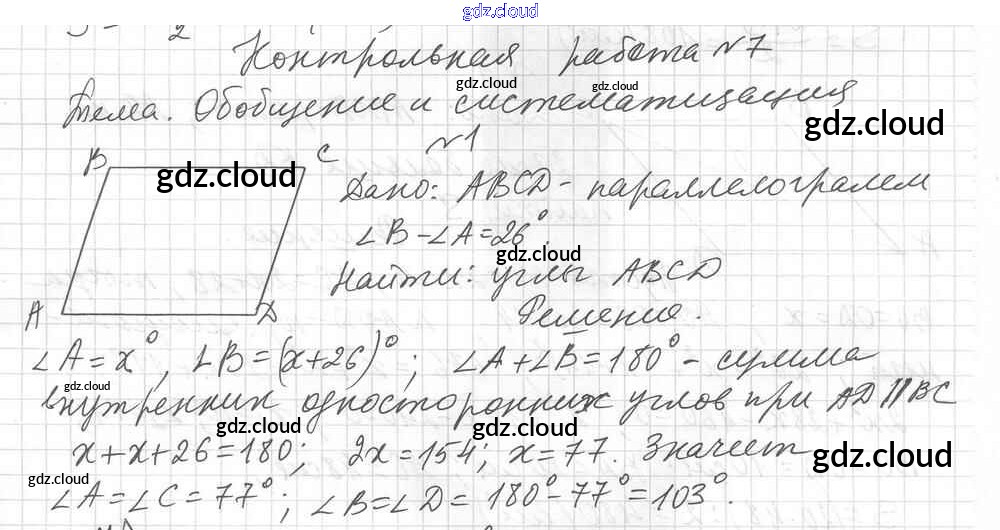 gdz.cloud
Контрольная работа №7
gdz.cloud gdz.cloud
Тема. Обобщение и систематизация
gdz.cloud
№1
B C
gdz.cloud
Дано: ABCD - параллелограмм
∠B - ∠A = 26°.
gdz.cloud
Найти: углы ABCD
A D
Решение.
∠A = x°, ∠B = (x+26)°; ∠A + ∠B = 180° - сумма
gdz.cloud
внутренних односторонних углов при AD || BC
gdz.cloud gdz.cloud
x + x + 26 = 180; 2x = 154; x = 77. Значит
gdz.cloud gdz.cloud
∠A = ∠C = 77°; ∠B = ∠D = 180° - 77° = 103°.
gdz.cloud gdz.cloud